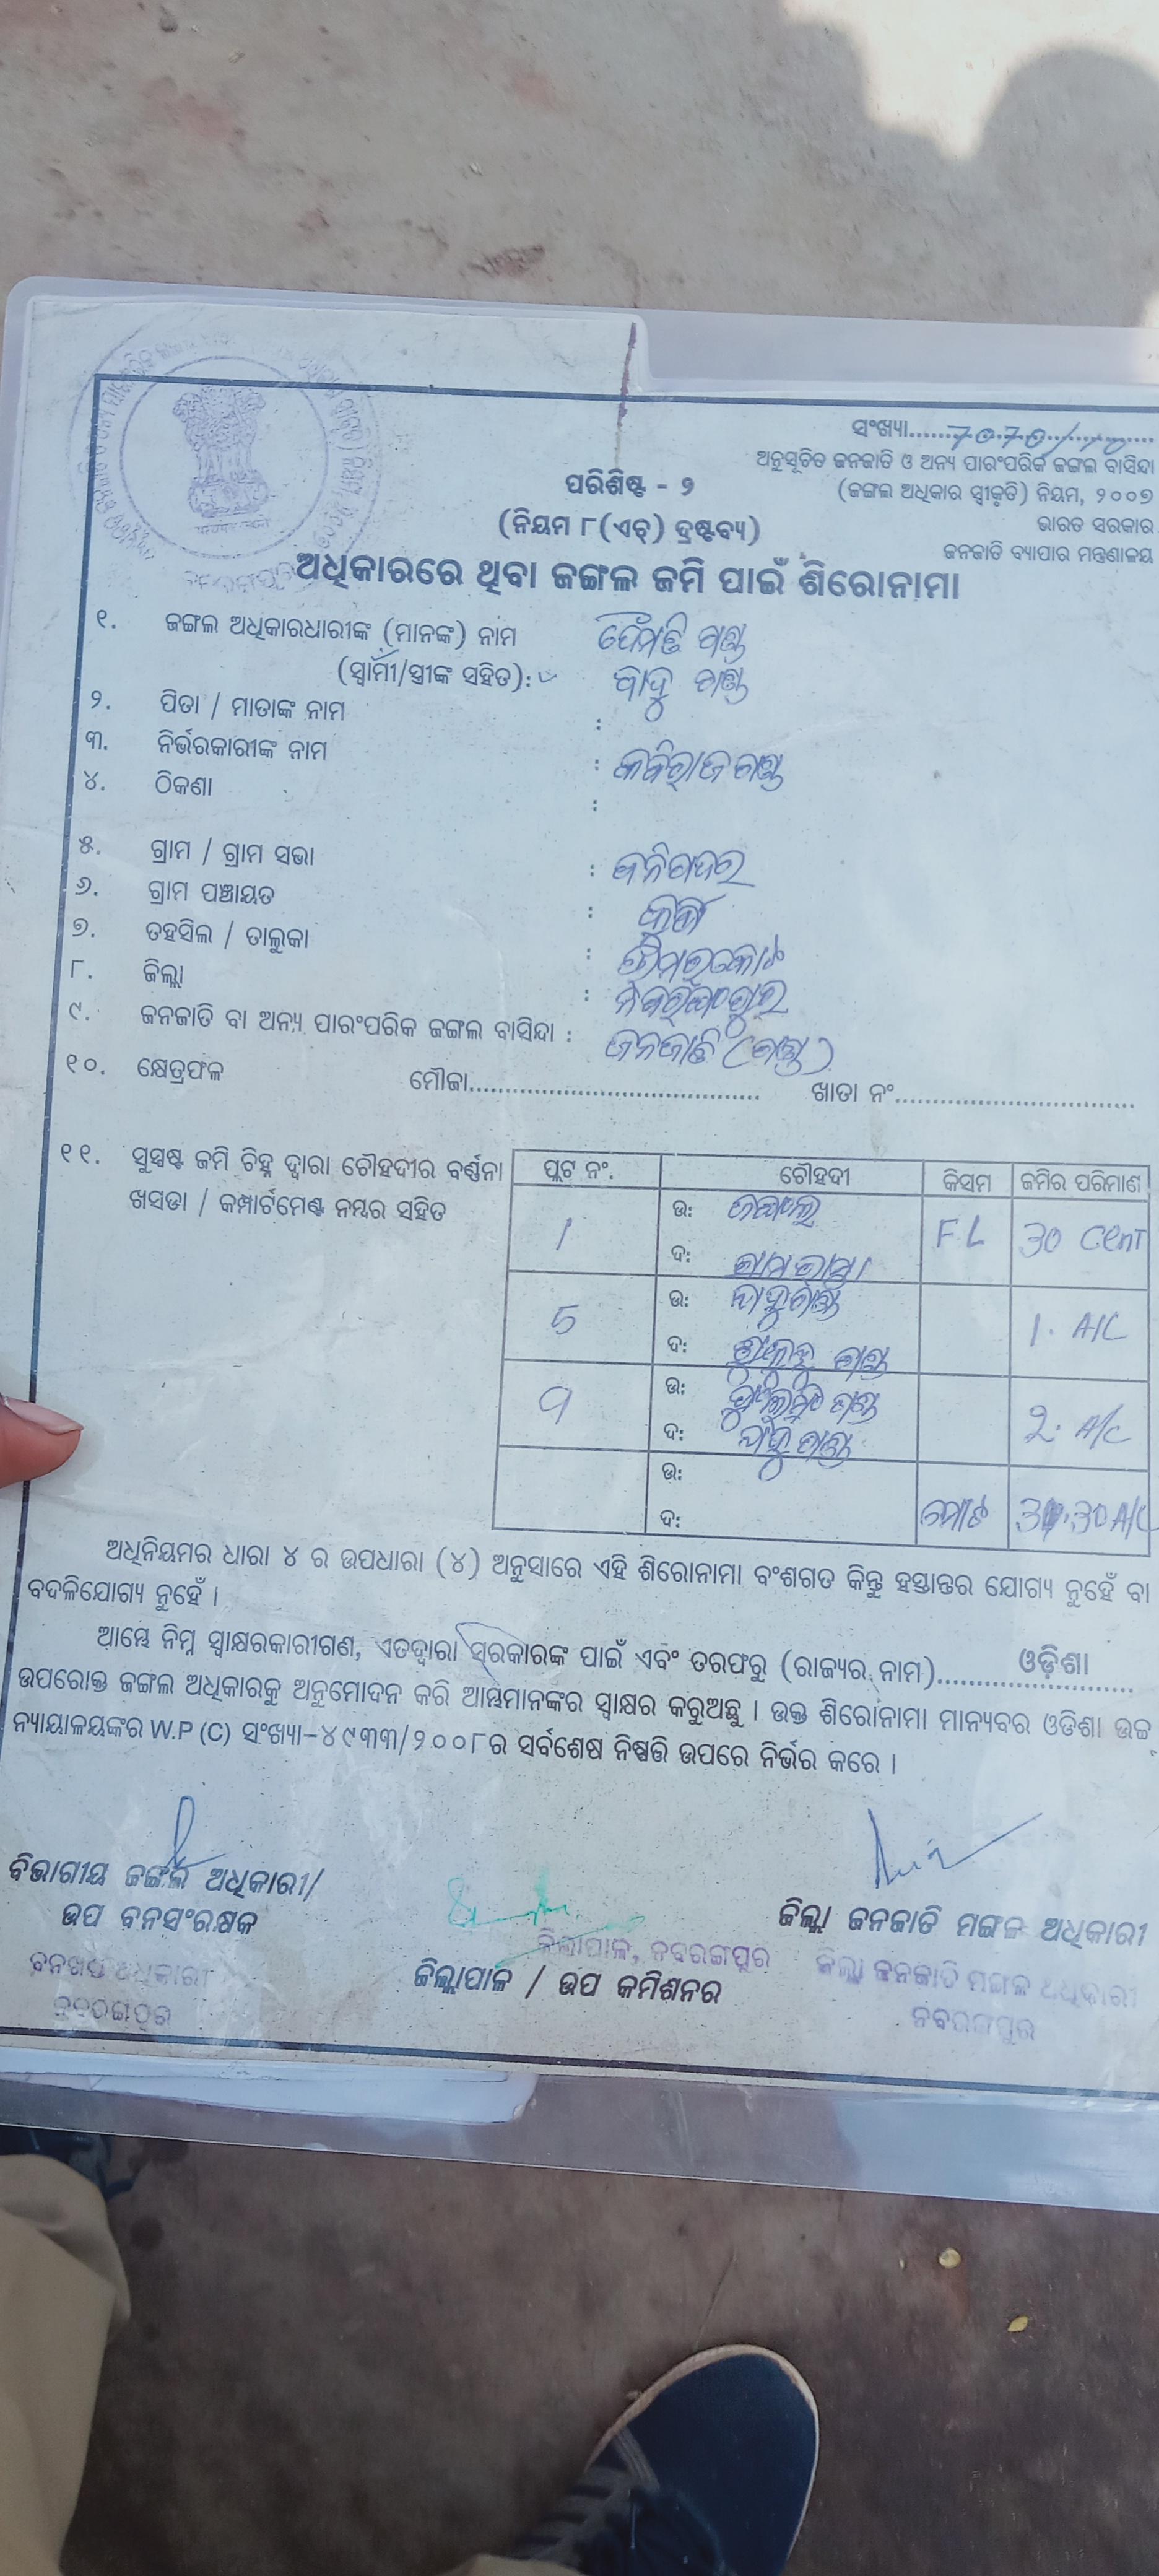 ସଂଖ୍ୟା......7070/10
ଅନୁସୂଚିତ ଜନଜାତି ଓ ଅନ୍ୟ ପାରଂପରିକ ଜଙ୍ଗଲ ବାସିନ୍ଦା
(ଜଙ୍ଗଲ ଅଧିକାର ସ୍ୱୀକୃତି) ନିୟମ, ୨୦୦୭
ଭାରତ ସରକାର
ଜନଜାତି ବ୍ୟାପାର ମନ୍ତ୍ରଣାଳୟ
ପରିଶିଷ୍ଟ - ୨
(ନିୟମ ୮(ଏଚ୍) ଦ୍ରଷ୍ଟବ୍ୟ)
ଅଧିକାରରେ ଥିବା ଜଙ୍ଗଲ ଜମି ପାଇଁ ଶିରୋନାମା
୧. ଜଙ୍ଗଲ ଅଧିକାରଧାରୀଙ୍କ (ମାନଙ୍କ) ନାମ
(ସ୍ୱାମୀ/ସ୍ତ୍ରୀଙ୍କ ସହିତ):
୨. ପିତା / ମାତାଙ୍କ ନାମ :
୩. ନିର୍ଭରକାରୀଙ୍କ ନାମ :
୪. ଠିକଣା :
୫. ଗ୍ରାମ / ଗ୍ରାମ ସଭା :
୬. ଗ୍ରାମ ପଞ୍ଚାୟତ :
୭. ତହସିଲ / ତାଲୁକା :
୮. ଜିଲ୍ଲା : ନବରଙ୍ଗପୁର
୯. ଜନଜାତି ବା ଅନ୍ୟ ପାରଂପରିକ ଜଙ୍ଗଲ ବାସିନ୍ଦା : ଜନଜାତି
୧୦. କ୍ଷେତ୍ରଫଳ ମୌଜା........................................ ଖାତା ନଂ.................................
୧୧. ସୁସ୍ପଷ୍ଟ ଜମି ଚିହ୍ନ ଦ୍ୱାରା ଚୌହଦୀର ବର୍ଣ୍ଣନା
ଖସଡା / କମ୍ପାର୍ଟମେଣ୍ଟ ନମ୍ବର ସହିତ
ପ୍ଲଟ ନଂ. ଚୌହଦୀ କିସମ ଜମିର ପରିମାଣ
1 ଉ: ଜଙ୍ଗଲ FL 30 Cent
ଦ:
5 ଉ: 1. A/C
ଦ:
9 ଉ: 2. A/C
ଦ:
ଉ:
ଦ: ମୋଟ
ଅଧିନିୟମର ଧାରା ୪ ର ଉପଧାରା (୪) ଅନୁସାରେ ଏହି ଶିରୋନାମା ବଂଶଗତ କିନ୍ତୁ ହସ୍ତାନ୍ତର ଯୋଗ୍ୟ ନୁହେଁ ବା
ବଦଳିଯୋଗ୍ୟ ନୁହେଁ ।
ଆମ୍ଭେ ନିମ୍ନ ସ୍ୱାକ୍ଷରକାରୀଗଣ, ଏତଦ୍ୱାରା ସରକାରଙ୍କ ପାଇଁ ଏବଂ ତରଫରୁ (ରାଜ୍ୟର ନାମ)...........ଓଡ଼ିଶା...........
ଉପରୋକ୍ତ ଜଙ୍ଗଲ ଅଧିକାରକୁ ଅନୁମୋଦନ କରି ଆମ୍ଭମାନଙ୍କର ସ୍ୱାକ୍ଷର କରୁଅଛୁ । ଉକ୍ତ ଶିରୋନାମା ମାନ୍ୟବର ଓଡିଶା ଉଚ୍ଚ
ନ୍ୟାୟାଳୟଙ୍କର W.P (C) ସଂଖ୍ୟା-୪୯୩୩/୨୦୦୮ର ସର୍ବଶେଷ ନିଷ୍ପତ୍ତି ଉପରେ ନିର୍ଭର କରେ ।
ବିଭାଗୀୟ ଜଙ୍ଗଲ ଅଧିକାରୀ/
ଉପ ବନସଂରକ୍ଷକ
ବନଖଣ୍ଡ ଅଧିକାରୀ
ନବରଙ୍ଗପୁର
ଜିଲ୍ଲାପାଳ, ନବରଙ୍ଗପୁର
ଜିଲ୍ଲାପାଳ / ଉପ କମିଶନର
ଜିଲ୍ଲା ଜନଜାତି ମଙ୍ଗଳ ଅଧିକାରୀ
ଜିଲ୍ଲା ଜନଜାତି ମଙ୍ଗଳ ଅଧିକାରୀ
ନବରଙ୍ଗପୁର